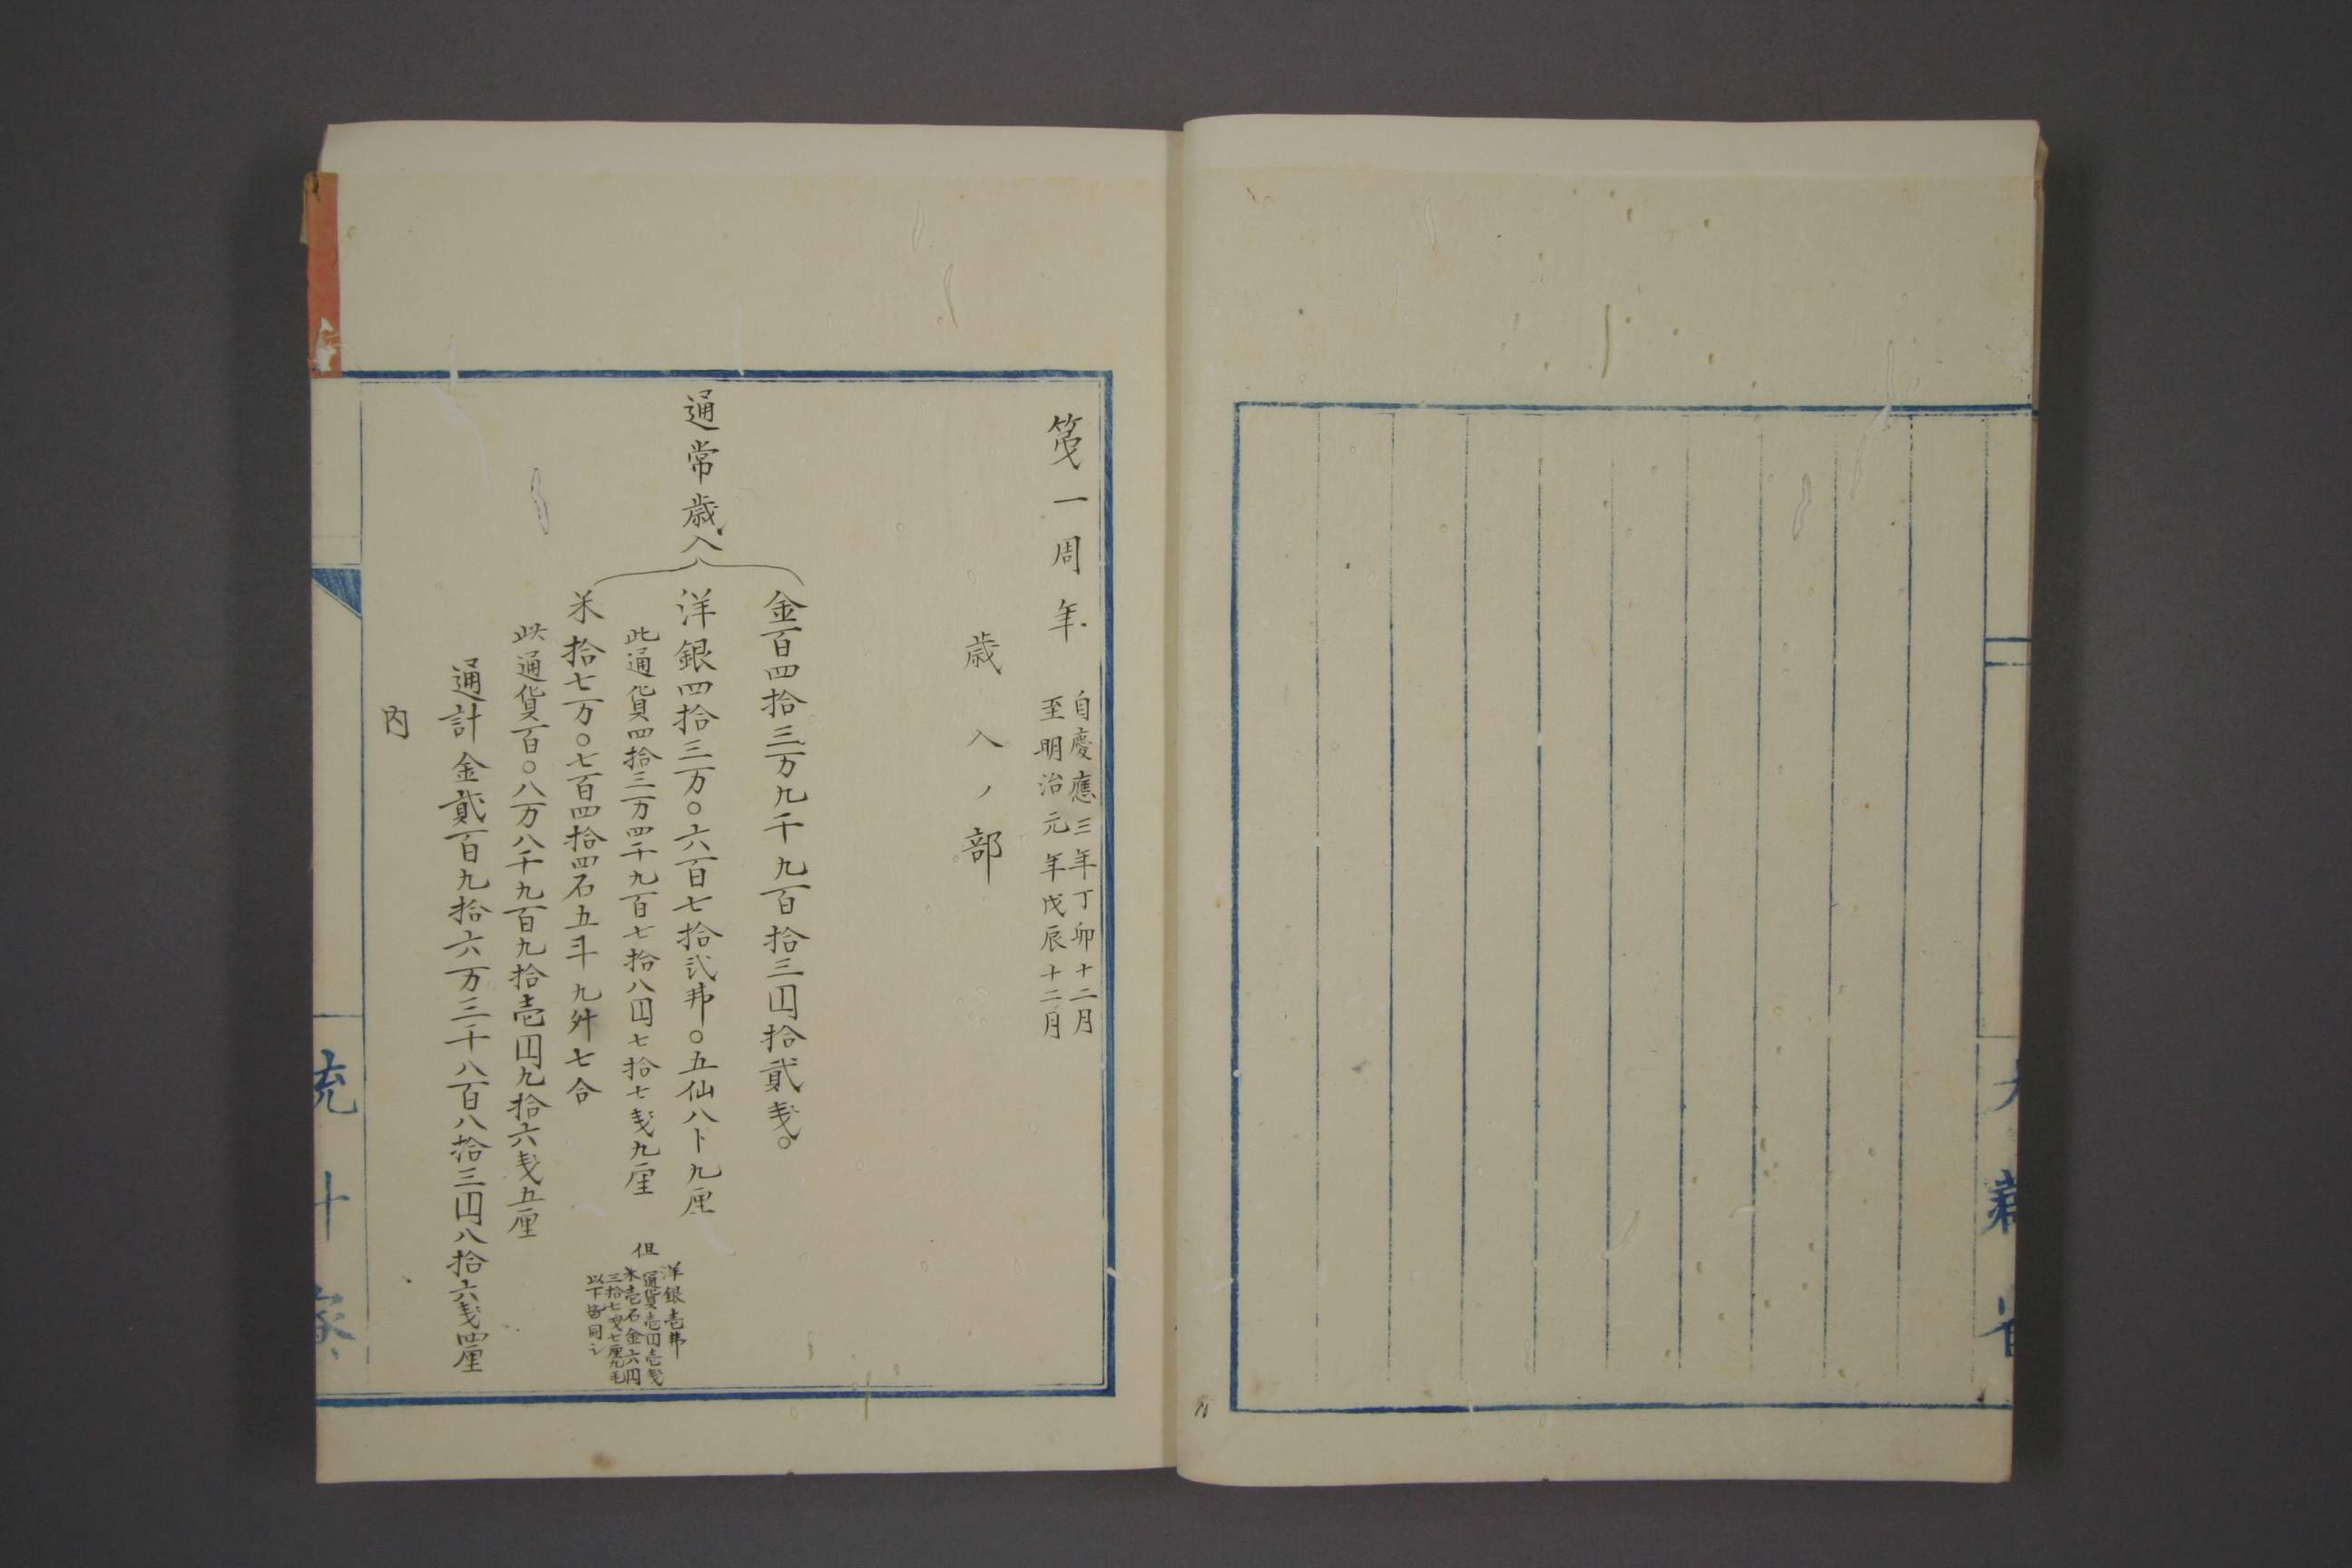 大藏省
第一周年
自慶應三年丁卯十二月
至明治元年戊辰十二月
歳入ノ部
通常歳入
金百四拾三万九千九百拾三円拾貳戔。
洋銀四拾三万〇六百七拾弐弗〇五仙八卜九厘
此通貨四拾三万四千九百七拾八円七拾七戔九厘
但
洋銀壱弗
通貨壱円壱戔
米壱石金六円
三拾七戔七厘九毛
以下皆同シ
米拾七万〇七百四拾四石五斗九舛七合
此通貨百〇八万八千九百九拾壱円九拾六戔五厘
通計金貳百九拾六万三千八百八拾三円八拾六戔四厘
内
統計寮